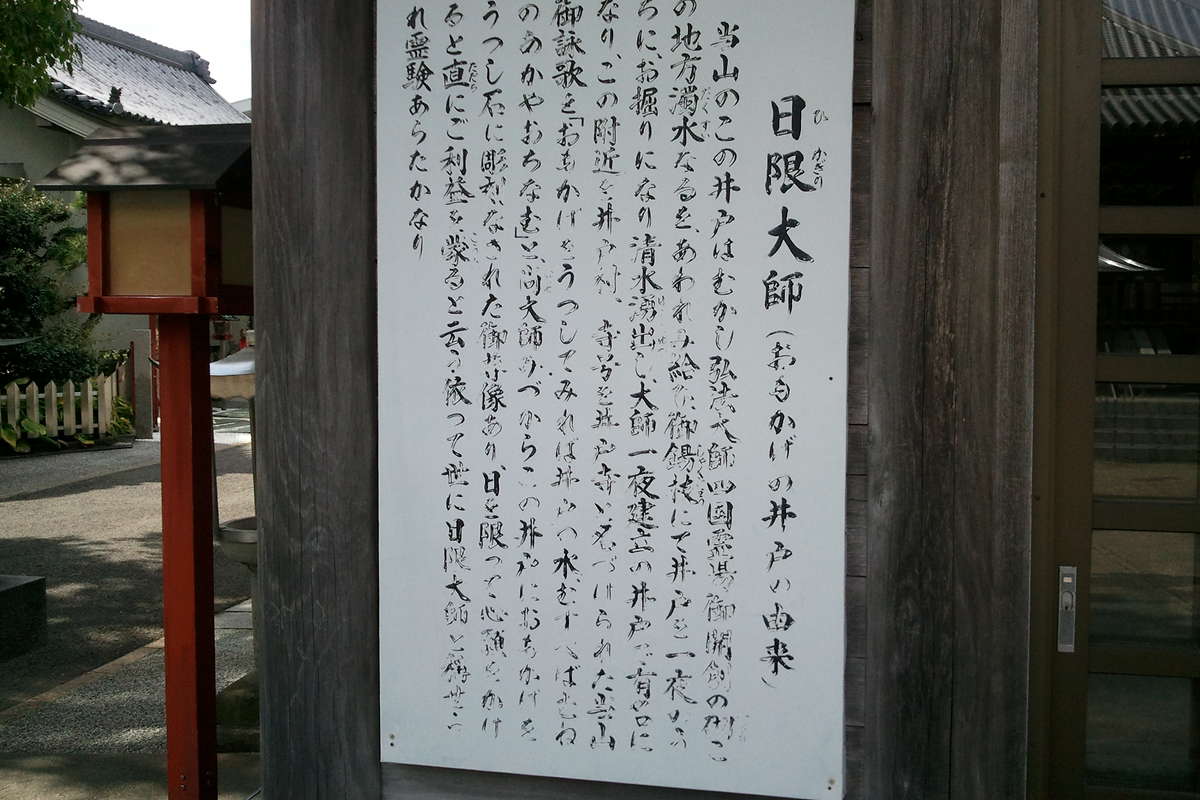 日限大師（おもかげの井戸の由来）
当山のこの井戸はむかし弘法大師四国霊場御開創の砌こ
の地方濁水なるを、あわれみ給ひ御錫杖にて井戸を一夜のう
ちに、お掘りになり清水湧出し、大師一夜建立の井戸で有名に
なり、この附近を井戸村、寺号を井戸寺と名づけられた当山
御詠歌を「おもかげをうつしてみれば井戸の水、むすべばむね
のあかやおちなむ」と尚大師みづからこの井戸におもかげを
うつし石に彫刻なされた御 像あり、日を限つて心願をかけ
ると直にご利益を、蒙ると云う依つて世に日限大師と称せら
れ霊験あらたかなり